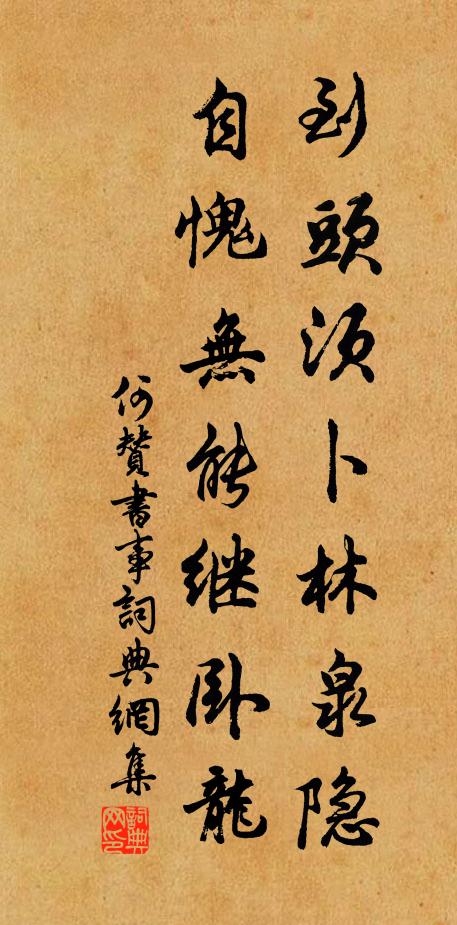 到頭須卜林泉隐
自愧無能継卧龍
何贊書事詞典網集
詞典
网印